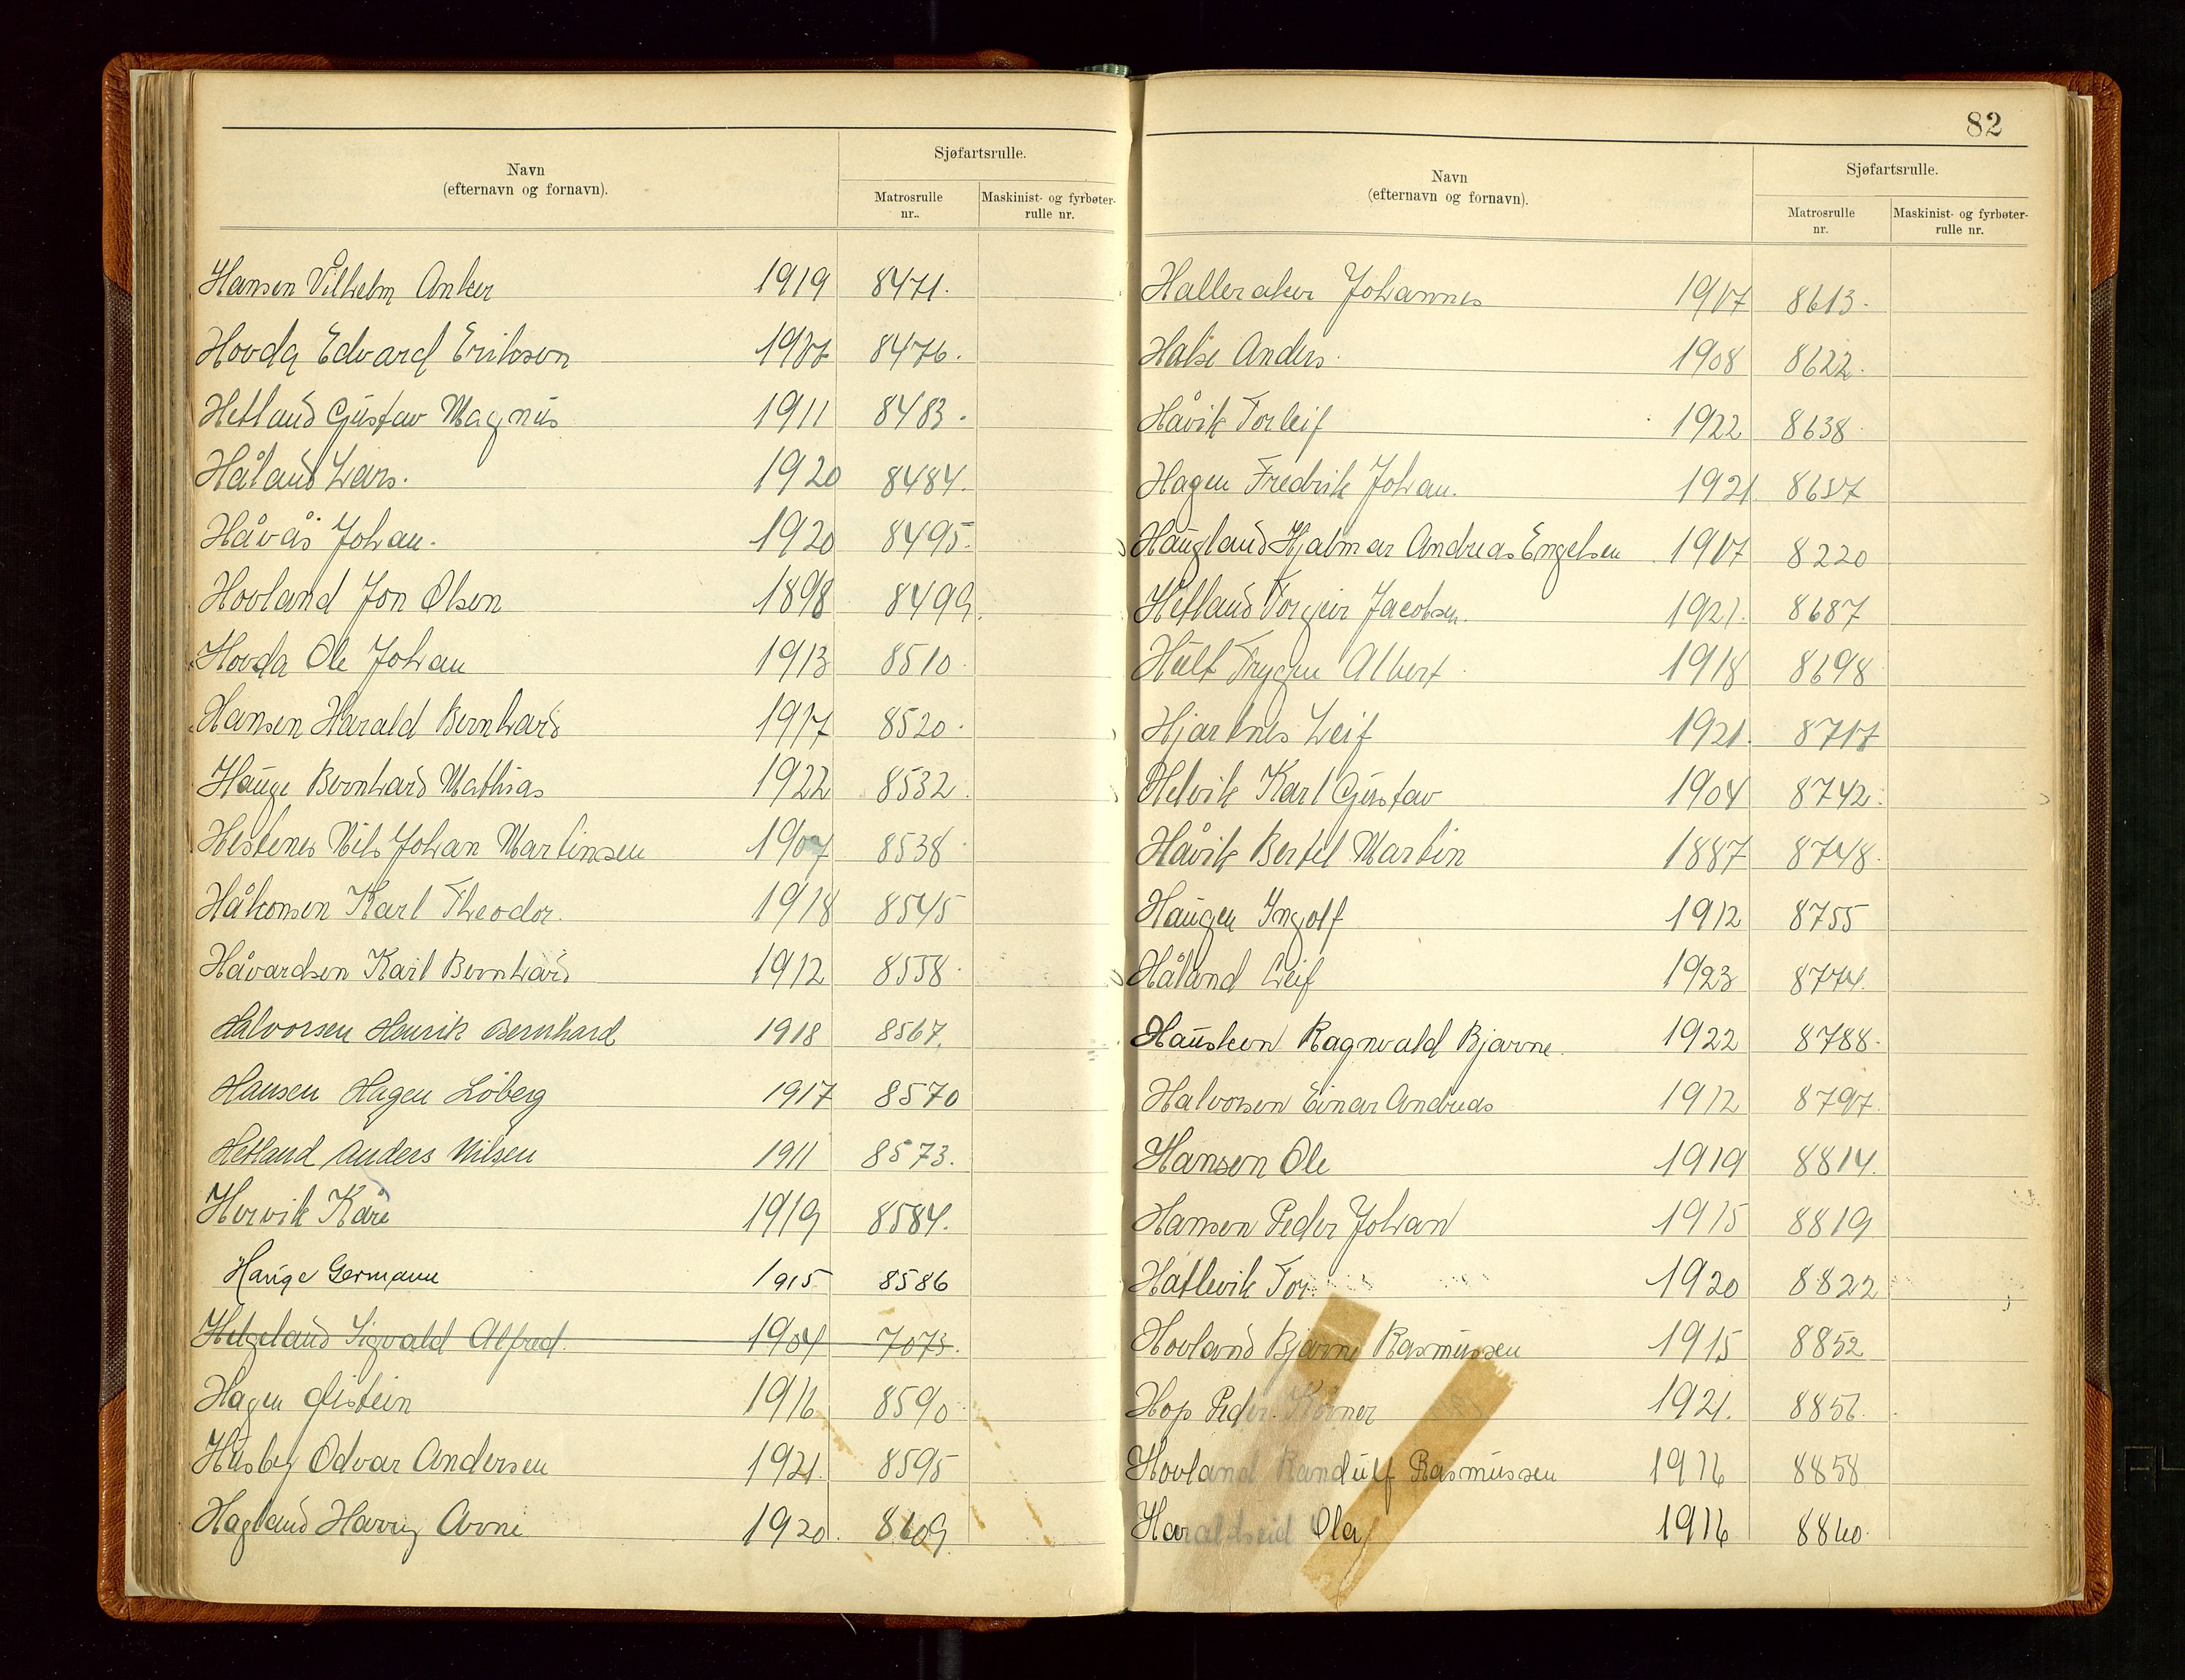 Navn
(efternavn og fornavn).
Sjøfartsrulle.
Matrosrulle nr..
Maskinist- og fyrbøter-rulle nr.
Hansen Vilhelm Anker 1919 8471.
Hovda Edvard Erikson 1907 8476.
Hetland Gustav Magnus 1911 8483.
Håland Lars. 1920 8484.
Håvås Johan. 1920 8495.
Hovland Jon Olsen 1898 8499.
Hovda Ole Johan 1913 8510.
Hansen Harald Bernhard 1917 8520.
Hauge Bernhard Mathias 1922 8532.
Hestenes Nils Johan Martinsen 1907 8538
Håkonsen Karl Theodor. 1918 8545
Håvardsen Karl Bernhard 1912 8558.
Halvorsen Henrik Bernhard 1918 8567.
Hansen Hagen Löberg 1917 8570
Hetland Anders Nilsen 1911 8573.
Hervik Kåre 1919 8584.
Hauge Germann 1915 8586
Helgeland Sigvald Alfred. 1904 7073.
Hagen Øistein 1916 8590
Husby Odvar Andersen 1921. 8595
Hagland Harry Arne 1920. 8609.
82
Navn
(efternavn og fornavn).
Sjøfartsrulle.
Matrosrulle nr.
Maskinist- og fyrbøter-rulle nr.
Halleraker Johannes 1917 8613.
Halse Anders. 1908 8622.
Håvik Torleif 1922 8638
Hagen Fredrik Johan. 1921 8657
Haugland Hjalmar Andreas Engelsen 1917 8220
Hetland Torgeir Jacobsen. 1921. 8687
Hult Trygve Albert 1918 8698
Hjartnes Leif 1921. 8717
Helvik Karl Gustav 1904 8742.
Håvik Bertel Martin 1887 8748.
Haugen Ingolf 1912 8755
Håland Leif 1923 8774.
Hausken Ragnvald Bjarne. 1922 8788.
Halvorsen Einar Andreas 1912 8797.
Hansen Ole 1919 8814.
Hansen Peder Johan 1915 8819
Hatlevik Tor. 1920 8822
Hovland Bjarne Rasmussen 1915 8852
Hop Peder 1921. 8856.
Hovland Randulf Rasmussen 1916 8858
Haraldseid Olaf 1916 8860.